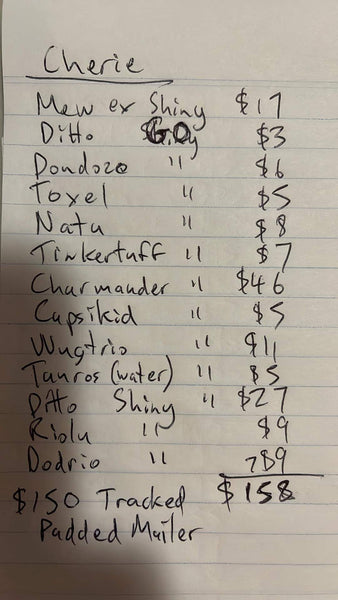 Cherie
Mew ex Shiny $17
Ditto GO $3
Dondozo " $6
Toxel " $5
Natu " $8
Tinkertuff " $7
Charmander " $46
Capsikid " $5
Wugtrio " $11
Tauros (water) " $5
Ditto Shiny " $27
Riolu " $9
Dodrio " $9
$150 Tracked $158
Padded Mailer